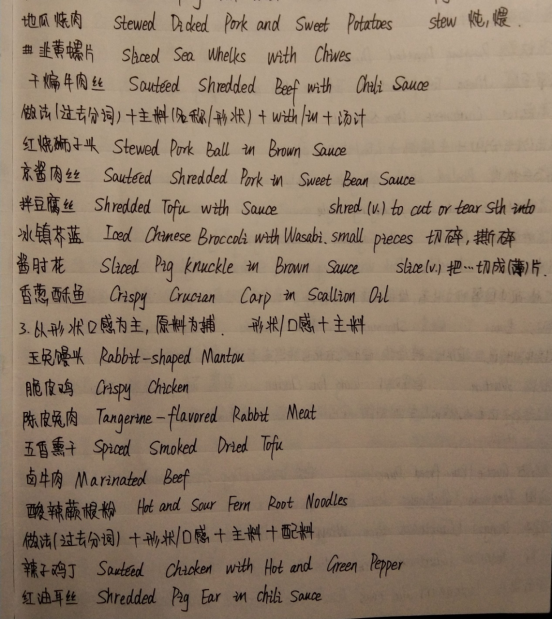 地瓜烧肉 Stewed Dicked Pork and Sweet Potatoes stew 炖,煨.
韭黄螺片 Sliced Sea Whelks with Chives
干煸牛肉丝 Sautéed Shredded Beef with Chili Sauce
做法(过去分词)+主料(名称/形状)+with/in+汤汁
红烧狮子头 Stewed Pork Ball in Brown Sauce
京酱肉丝 Sautéed Shredded Pork in Sweet Bean Sauce
拌豆腐丝 Shredded Tofu with Sauce shred (v.) to cut or tear sth into
冰镇芥蓝 Iced Chinese Broccoli with Wasabi. small pieces 切碎,撕碎
酱肘花 Sliced Pig Knuckle in Brown Sauce slice(v.) 把…切成(薄)片.
香葱酥鱼 Crispy Crucian Carp in Scallion Oil
3.以形状口感为主,原料为辅. 形状/口感+主料
玉兔馒头 Rabbit-shaped Mantou
脆皮鸡 Crispy Chicken
陈皮兔肉 Tangerine-flavored Rabbit Meat
五香熏干 Spiced Smoked Dried Tofu
卤牛肉 Marinated Beef
酸辣蕨根粉 Hot and Sour Fern Root Noodles
做法(过去分词)+形状/口感+主料+配料
辣子鸡丁 Sautéed Chicken with Hot and Green Pepper
红油耳丝 Shredded Pig Ear in chili Sauce